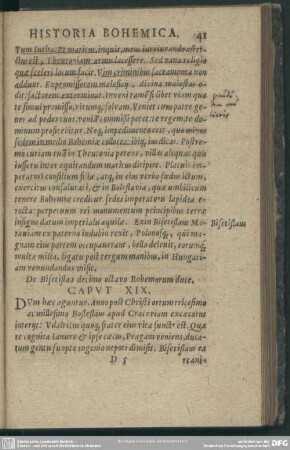 HISTORIA BOHEMICA. 41
Tum Iutha: Et maritus, inquit, meus iureiurando astri-
ctus est, Theutoniam armis lacessere. Sed vana religio
quæ sceleri locum facit. Vim criminibus sacramenta non
addunt. Expromissorem maleficij, divina maiestas o-
dit: factorem abominatur. Inveni tamen si libet viam qua
te simul promissis, virumq, salvam.
ad pedes tuos, veniam commissi petet: te regem, te do-
minum profitebitur. Neq, impedimento erit, quo minus
sedem in medio Bohemiæ colloces, ibiq, ius dicas. Postre-
mo curiam tuam in Thuronia petens, villas aliquas quis
iussero in ter equitandum maritus diripiet. Placuit im-
peratori consilium filiæ, atq, in eius verba fœdus ictum,
exercitus consalutati, & in Boleslavia, quæ umbilicum
tenere Bohemiæ creditur sedes imperatori lapidea e-
recta: perpetuum rei monumentum principibus terræ
insigne datum imperialis aquilæ. Exin Bisetislaus Mo-
raviam ex paterno indulto rexit, Polonosq, qui ma-
gnam eius partem occupaverant, bello delevit, eorumq,
multa milia, ligatis post tergum manibus, in Hungari-
am venundandos misit.
De Bisetislao decimo octavo Bohemorum duce.
CAPVT XIX.
DVm hæc aguntur. Anno post Christi ortum tricesimo
ac millesimo Boleslaus apud Cracoviam excæcatus
interijt. Vldalricus quoq, frater eius vita functus est. Qua
re cognita Ianurus & ipse cæcus, Pragam veniens, duca-
tum gentis suopte ingenio nepoti dimisit. Bisetislaus ex
D 5
Bisetislaus